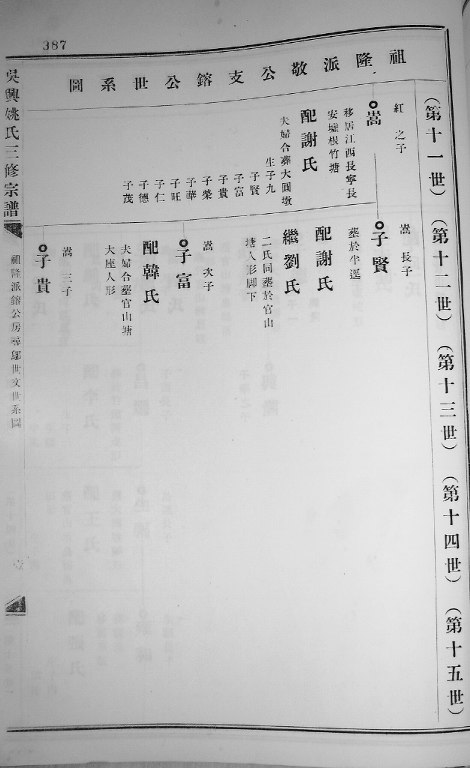 387
祖隆派敬公支鎔公世系圖
(第十一世)
(第十二世)
(第十三世)
(第十四世)
(第十五世)
紅之子
嵩
移居江西長寧長
安墟根竹塘
配謝氏
夫婦合葬大圓墩
生子九
子賢
子富
子貴
子榮
子華
子旺
子仁
子德
子茂
嵩長子
子賢
葬於半逕
配謝氏
繼劉氏
二氏同葬於官山
塘人形脚下
嵩次子
子富
配韓氏
夫婦合葬官山塘
大座人形
嵩三子
子貴
吳興姚氏三修宗譜
祖隆派鎔公房尋鄔世文世系圖